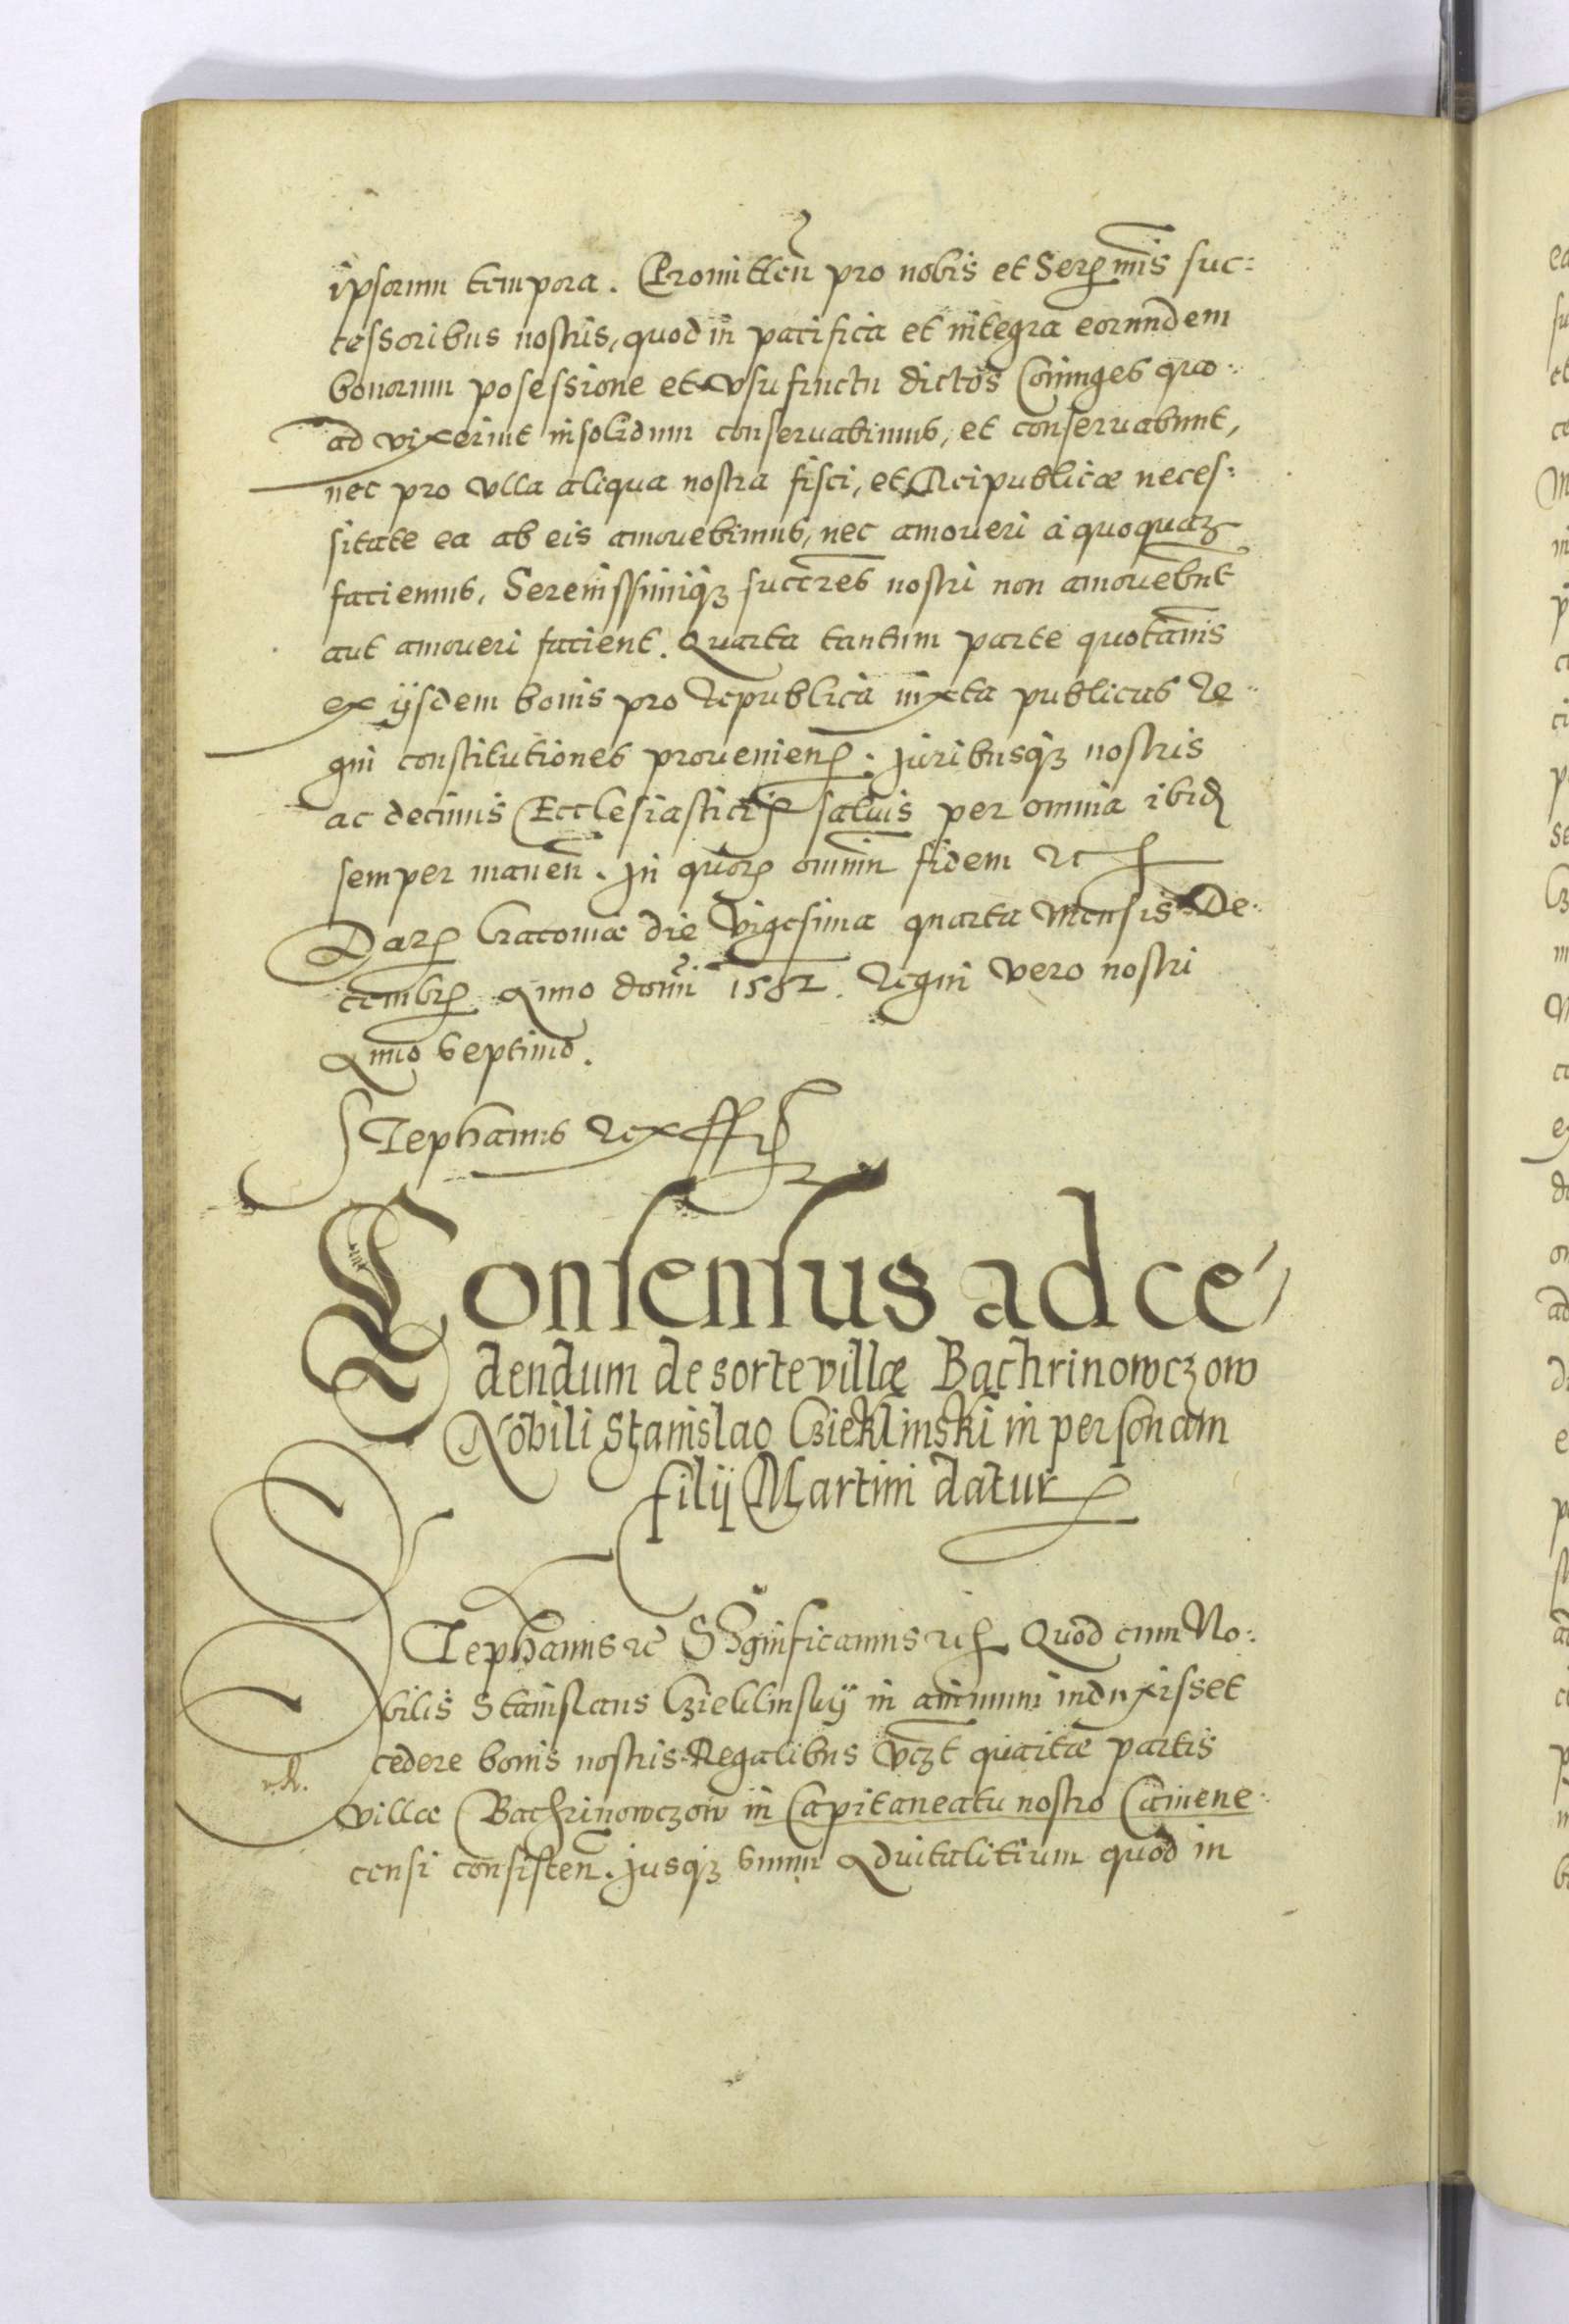 ipsorum tempora. Promitten̄ pro nobis et Seren̄mis suc:
cessoribus nostris, quod in pacifica et integra eorundem
bonorum posessione et vsufructu dictos Coniuges quo:
ad vixerint insolidum conseruabimus, et conseruabunt,
nec pro vlla aliqua nostra fisci, et Reipublicæ neces:
sitate ea ab eis amouebimus, nec amoueri à quoquaꝫ
faciemus, Serenissimiqꝫ succ̄res nostri non amouebn̄t
aut amoueri facient. Quarta tantum parte quotān̄is
ex ijsdem bonis pro Republica iuxta publicas Re:
gni constitutiones prouenien̄. Juribusqꝫ nostris
ac decimis Ecclesiastic̄ saluis per omnia ibid̄
semper manen̄. In quor̄ omn̄iu fidem etc
Dat̄ Cracouiæ die Vigesima quarta Mensis De:
cembr̄ Anno domn̄i 1582. Regni vero nostri
Anno Septimo.
Stephanus Rex ssst
Consensus ad ce
dendum de sorte villæ Bachrinowczow
Nobili Stanislao Czieklinski in personam
filij Martini datur
Stephanus etc Significamus etc Quod cum No:
bilis Stanislaus Czieklinskij in animum induxisset
cedere bonis nostris Regalibus vꝫt quartæ partis
villæ Bachrinowczow in Capitaneatu nostro Camene:
censi consisten̄. Jusqꝫ suum Aduitalitium quod in